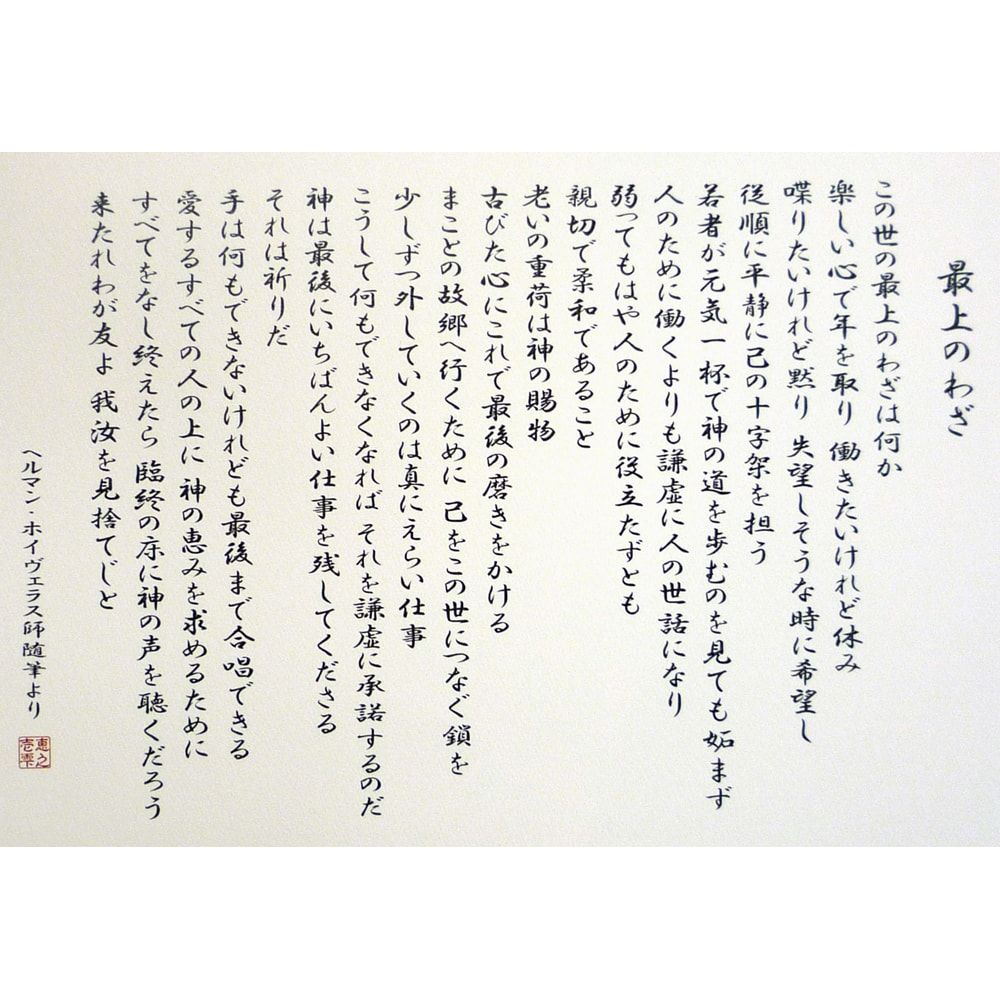 最上のわざ
この世の最上のわざは何か
楽しい心で年を取り 働きたいけれど休み
喋りたいけれど黙り 失望しそうな時に希望し
従順に平静に己の十字架を担う
若者が元気一杯で神の道を歩むのを見ても妬まず
人のために働くよりも謙虚に人の世話になり
弱ってもはや人のために役立たずとも
親切で柔和であること
老いの重荷は神の賜物
古びた心にこれで最後の磨きをかける
まことの故郷へ行くために 己をこの世につなぐ鎖を
少しずつ外していくのは真にえらい仕事
こうして何もできなくなれば それを謙虚に承諾するのだ
神は最後にいちばんよい仕事を残してくださる
それは祈りだ
手は何もできないけれども最後まで合唱できる
愛するすべての人の上に 神の恵みを求めるために
すべてをなし終えたら 臨終の床に神の声を聴くだろう
来たれわが友よ 我汝を見捨てじと
ヘルマン・ホイヴェラス師随筆より